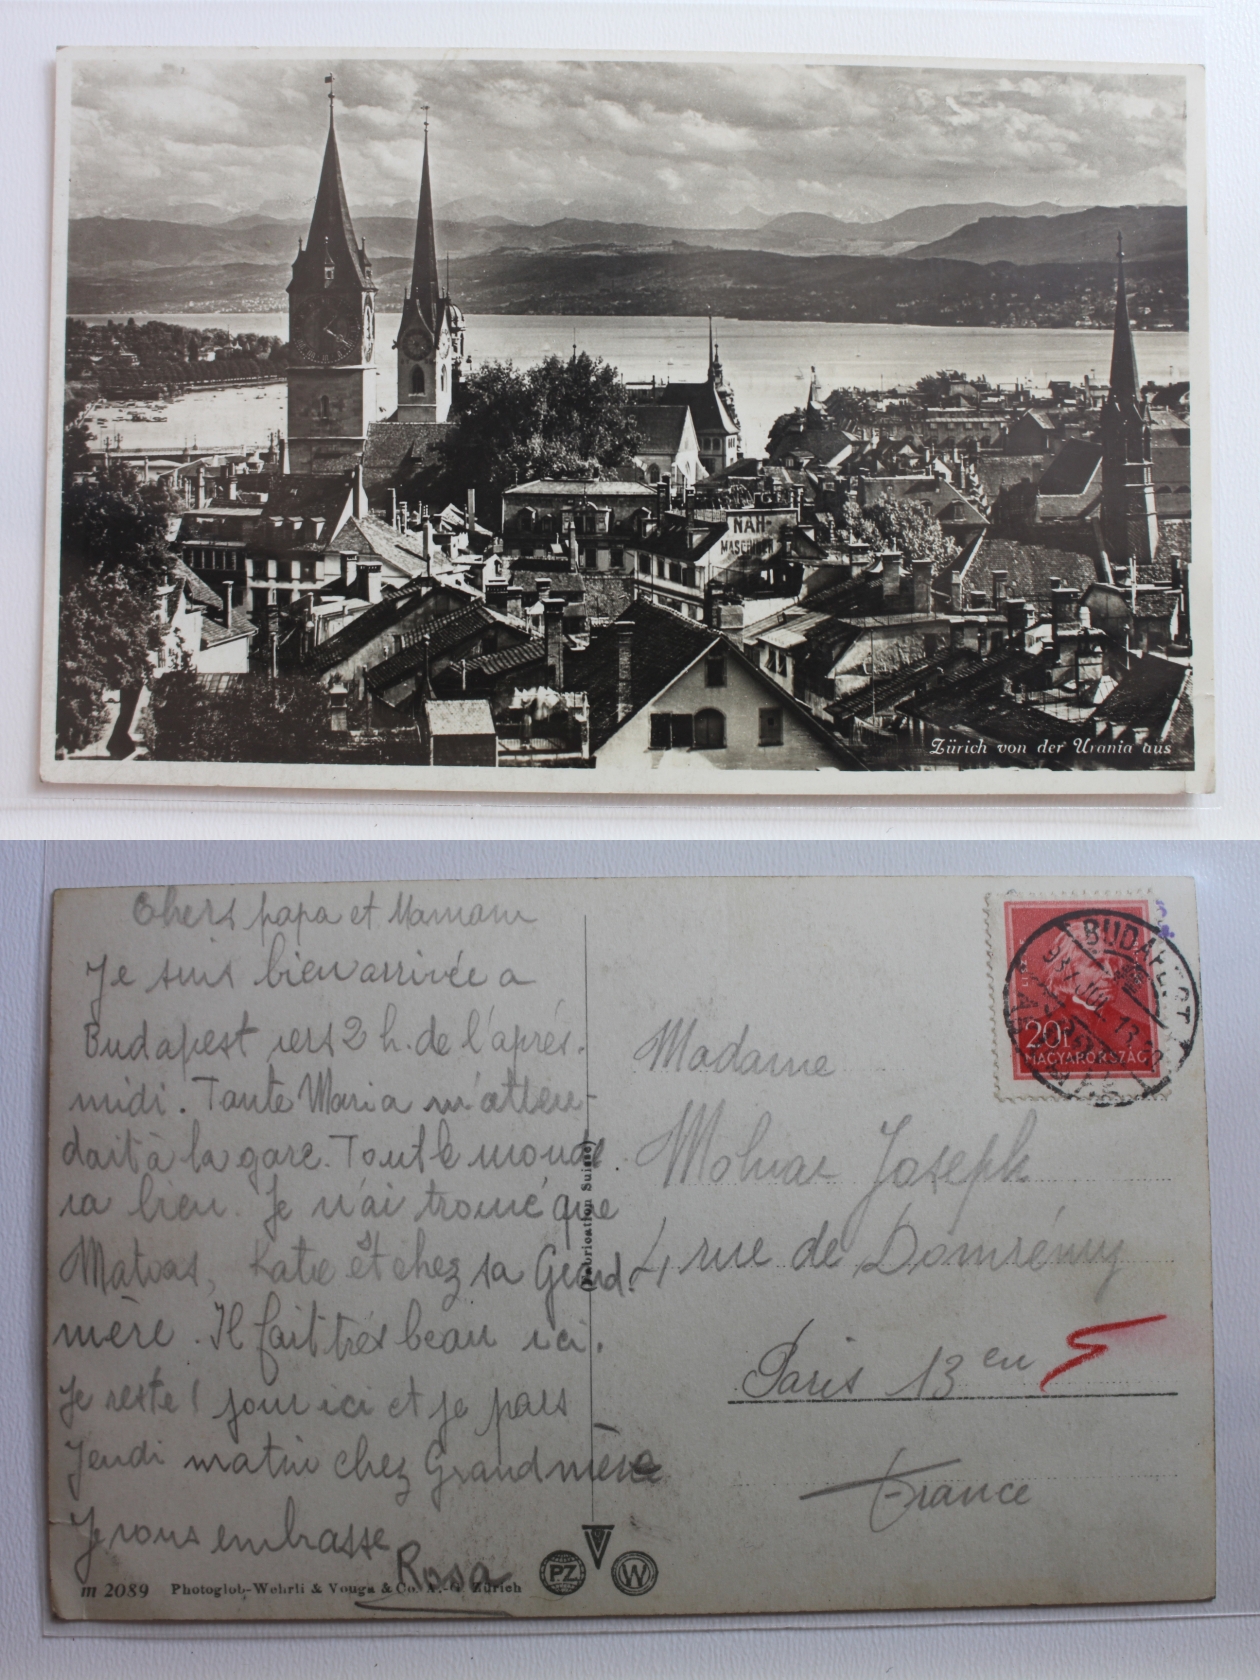 NÄH-
MASCHINEN
Zürich von der Urania aus
Chers papa et Maman
Je suis bien arrivée a
Budapest vers 2 h. de l'après-
midi. Tante Maria m'atten-
dait à la gare. Tout le monde
va bien. Je n'ai trouvé que
Matvas, Katie est chez sa Grand-
mère. Il fait très beau ici.
Je reste 1 jour ici et je pars
Jeudi matin chez Grandmère
Je vous embrasse
Rosa
BUDAPEST
20f
MAGYARORSZÁG
Madame
Molnar Joseph
4 rue de Domrémy
Paris 13 en
France
(Fabrication Suisse)
m 2089 Photoglob-Wehrli & Vouga & Co. A.-G. Zürich
PZ
V
W